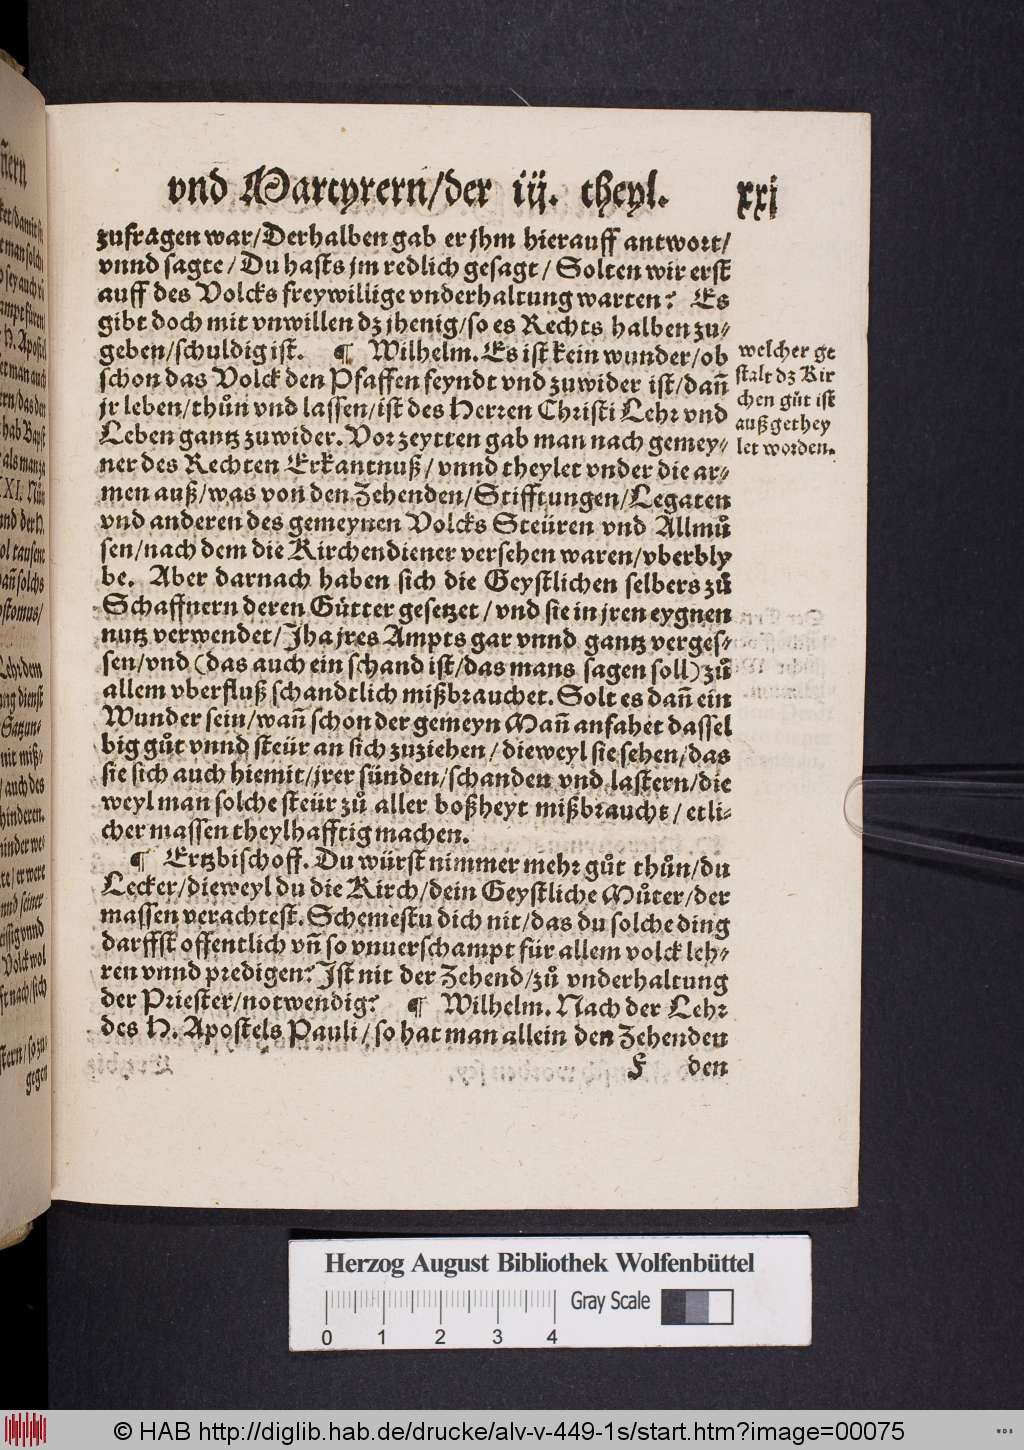 vnd Martyrern/der iij. theyl. xxj
zufragen war/Derhalben gab er jhm hierauff antwort/
vnnd sagte/Du hasts jm redlich gesagt/Solten wir erst
auff des Volcks freywillige vnderhaltung warten? Es
gibt doch mit vnwillen dz jhenig/so es Rechts halben zu-
geben/schuldig ist. ¶ Wilhelm. Es ist kein wunder/ob
schon das Volck den Pfaffen feyndt vnd zuwider ist/dañ
jr leben/thůn vnd lassen/ist des Herren Christi Lehr vnd
Leben gantz zuwider. Vor zeytten gab man nach gemey-
ner des Rechten Erkantnuß/vnnd theylet vnder die ar-
men auß/was von den Zehenden/Stifftungen/Legaten
vnd anderen des gemeynen Volcks Steüren vnd Allmů
sen/nach dem die Kirchendiener versehen waren/vberbly
be. Aber darnach haben sich die Geystlichen selbers zů
Schaffnern deren Gütter gesetzet/vnd sie in jren eygnen
nutz verwendet/Jha jres Ampts gar vnnd gantz verges-
sen/vnd (das auch ein schand ist/das mans sagen soll) zů
allem vberfluß schandtlich mißbrauchet. Solt es dañ ein
Wunder sein/wañ schon der gemeyn Mañ anfahet dassel
big gůt vnnd steür an sich zuziehen/dieweyl sie sehen/das
sie sich auch hiemit/jrer sünden/schanden vnd lastern/die
weyl man solche steür zů aller boßheyt mißbraucht/etli-
cher massen theylhafftig machen.
¶ Ertzbischoff. Du würst nimmer mehr gůt thůn/du
Lecker/dieweyl du die Kirch/dein Geystliche Můter/der
massen verachtest. Schemestu dich nit/das du solche ding
darffst offentlich vñ so vnuerschampt für allem volck leh-
ren vnnd predigen? Ist nit der Zehend/zů vnderhaltung
der Priester/notwendig? ¶ Wilhelm. Nach der Lehr
des H. Apostels Pauli/so hat man allein den Zehenden
F den
welcher ge
stalt dz Kir
chen gůt ist
auß gethey
let worden.
Herzog August Bibliothek Wolfenbüttel
Gray Scale
0 1 2 3 4
© HAB http://diglib.hab.de/drucke/alv-v-449-1s/start.htm?image=00075